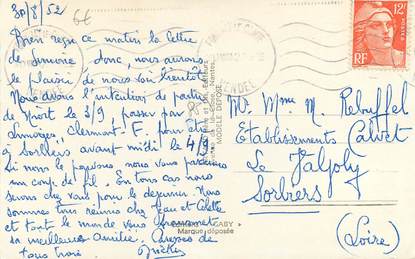 30/8/52
Bien reçu ce matin la lettre
de Simone, donc, nous aurons
le plaisir de nous voir bientôt
Nous avons l'intention de partir
de Niort le 3/9, passer par
Limoges, Clermont-F. pour être
à Sorbiers avant midi le 4/9
Si nous le pouvons nous vous passerons
un coup de fil. En tous cas nous
serons chez vous pour le déjeuner. Nous
sommes tous réunis chez Jean et Colette
et tout le monde vous envoie
sa meilleure amitié. Caresses de
tous trois
GABY
Marque déposée
MODÈLE DÉPOSÉ
12F
POSTES
RF
VENDÉE
Mr Mme M. Rebuffel
Etablissements Calvet
Le Valjoly
Sorbiers
(Loire)